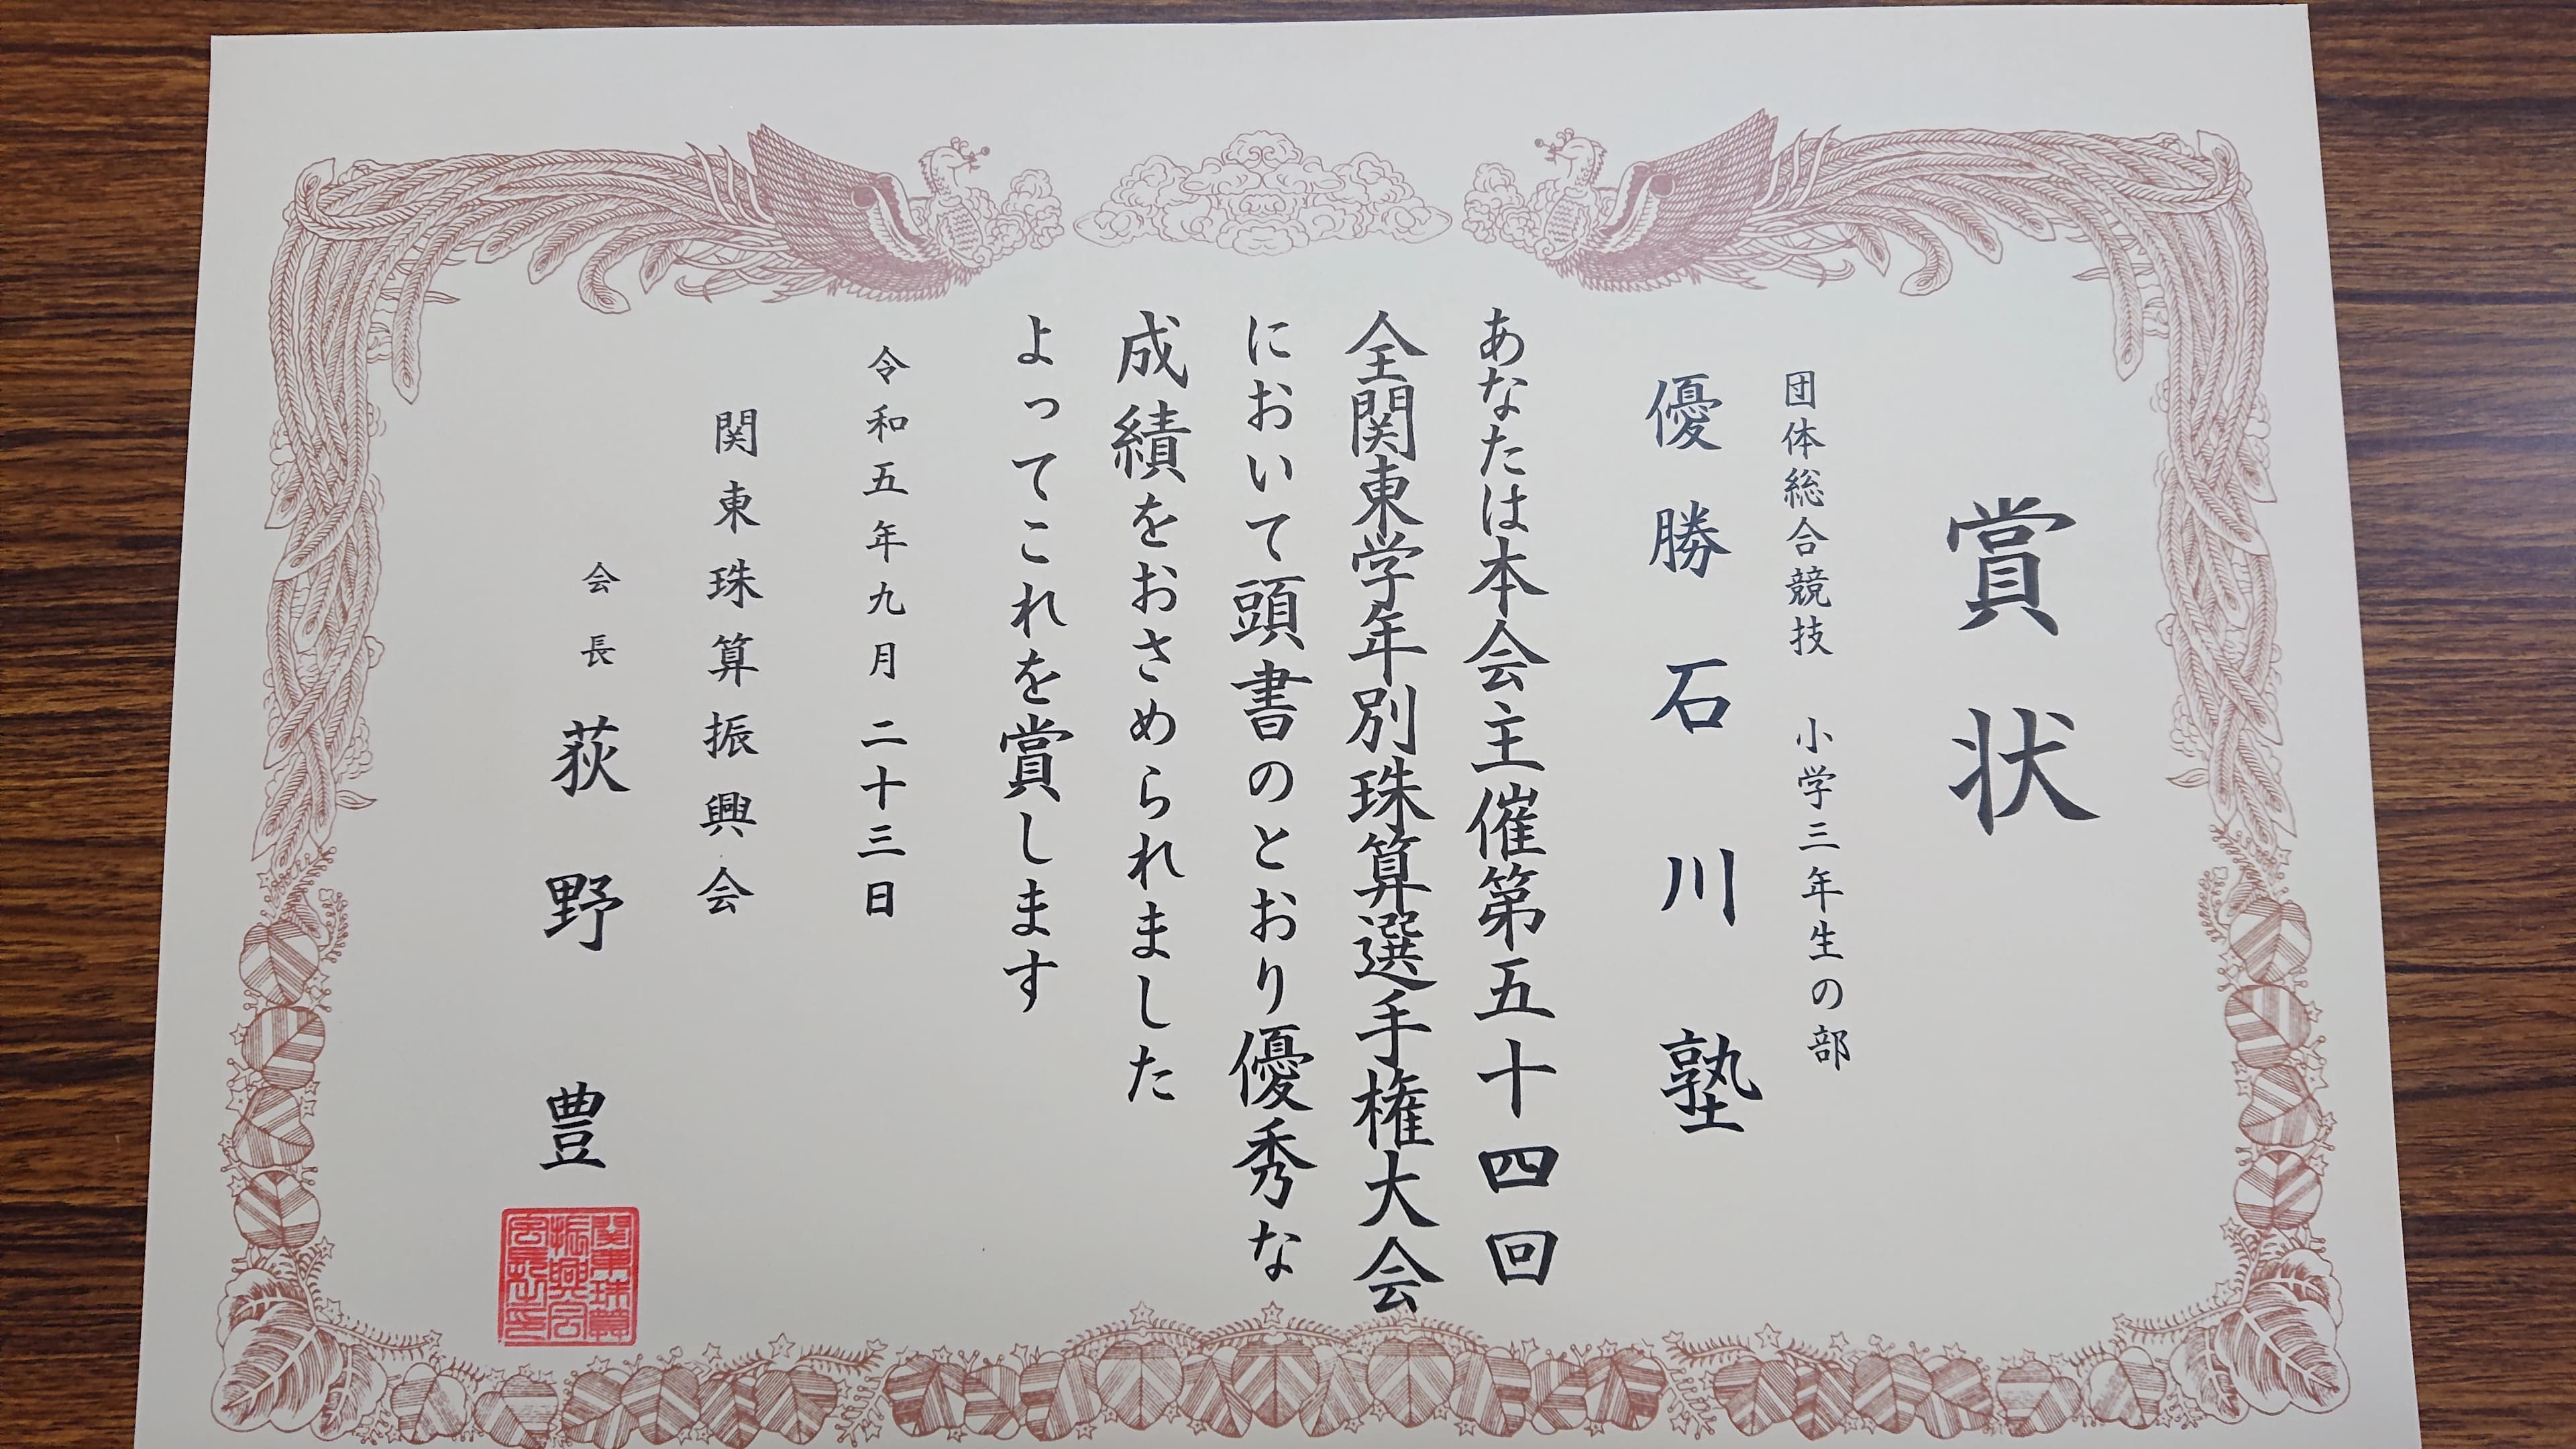 賞状
団体総合競技 小学三年生の部
優勝 石川塾
あなたは本会主催第五十四回
全関東学年別珠算選手権大会
において頭書のとおり優秀な
成績をおさめられました
よってこれを賞します
令和五年九月二十三日
関東珠算振興会
会長 荻野 豊